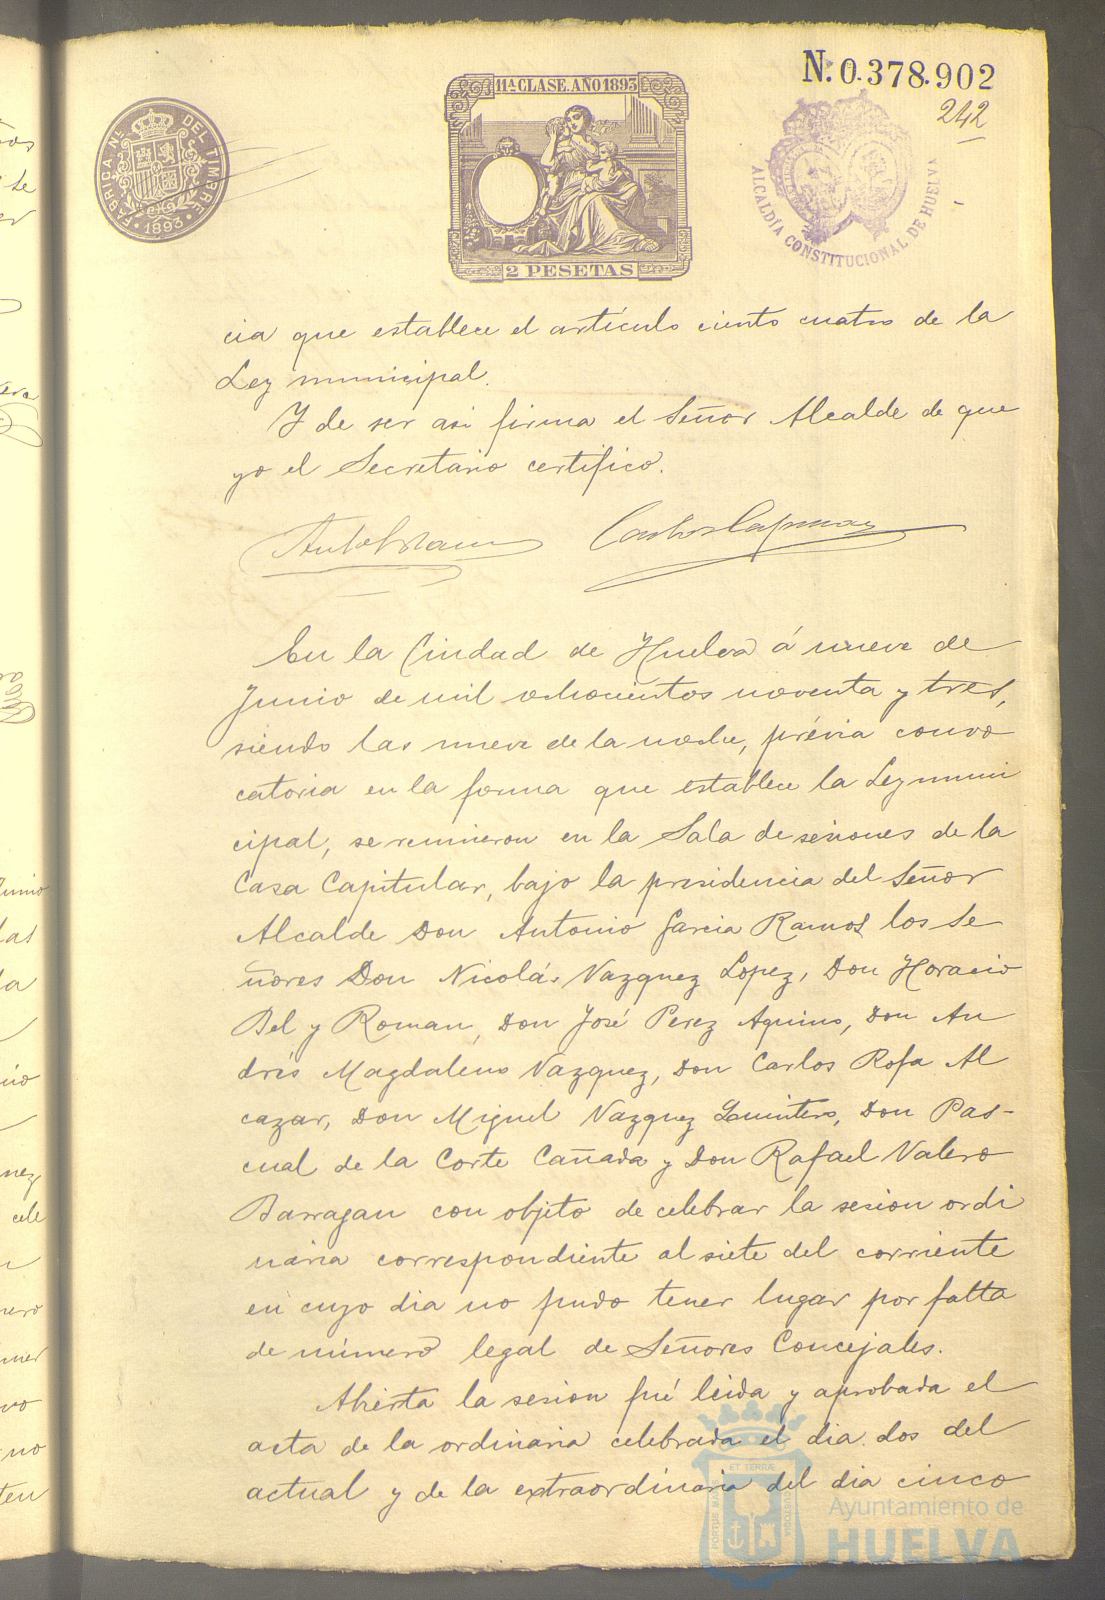 N. 0.378.902
242
11ª CLASE. AÑO 1893
FABRICA Nl. DEL TIMBRE
1893
2 PESETAS
ALCALDÍA CONSTITUCIONAL DE HUELVA
cia que establece el artículo ciento cuatro de la
Ley municipal.
Y de ser asi firma el Señor Alcalde de que
yo el Secretario certifico.
En la Ciudad de Huelva á nueve de
Junio de mil ochocientos noventa y tres,
siendo las nueve de la noche, prévia convo
catoria en la forma que establece la Ley muni
cipal, se reunieron en la Sala de sesiones de la
Casa Capitular, bajo la presidencia del Señor
Alcalde Don Antonio Garcia Ramos los Se
ñores Don Nicolás Vazquez Lopez, Don Horacio
Bel y Roman, Don José Perez Aquino, Don An
drés Magdaleno Vazquez, Don Carlos Rofa Al
cazar, Don Miguel Vazquez Quintero, Don Pas-
cual de la Corte Cañada y Don Rafael Valero
Barragan con objeto de celebrar la sesion ordi
naria correspondiente al siete del corriente
en cuyo dia no pudo tener lugar por falta
de número legal de Señores Concejales.
Abierta la sesion fué leida y aprobada el
acta de la ordinaria celebrada el dia dos del
actual y de la extraordinaria del dia cinco
PORTUS MARIS ET TERRÆ CUSTODIA
Ayuntamiento de
HUELVA